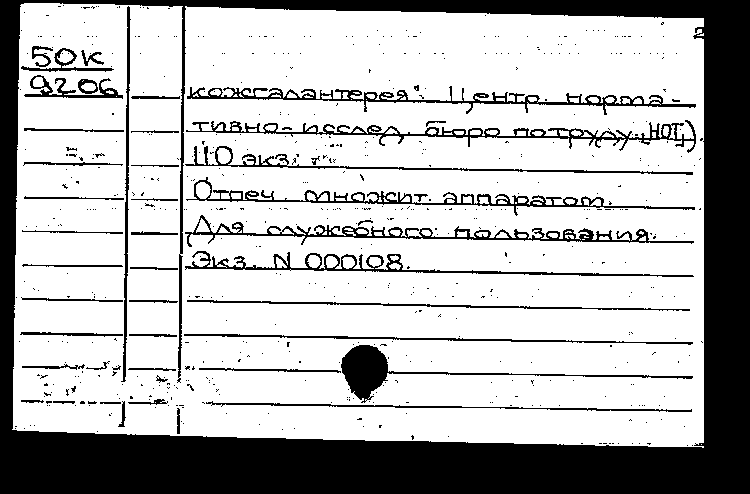 2
50К
9206
кожгалантерея". Центр. норма-
тивно-исслед. бюро по труду (НОТ).
110 экз.
Отпеч. множит. аппаратом.
Для служебного пользования.
Экз. N 000108.